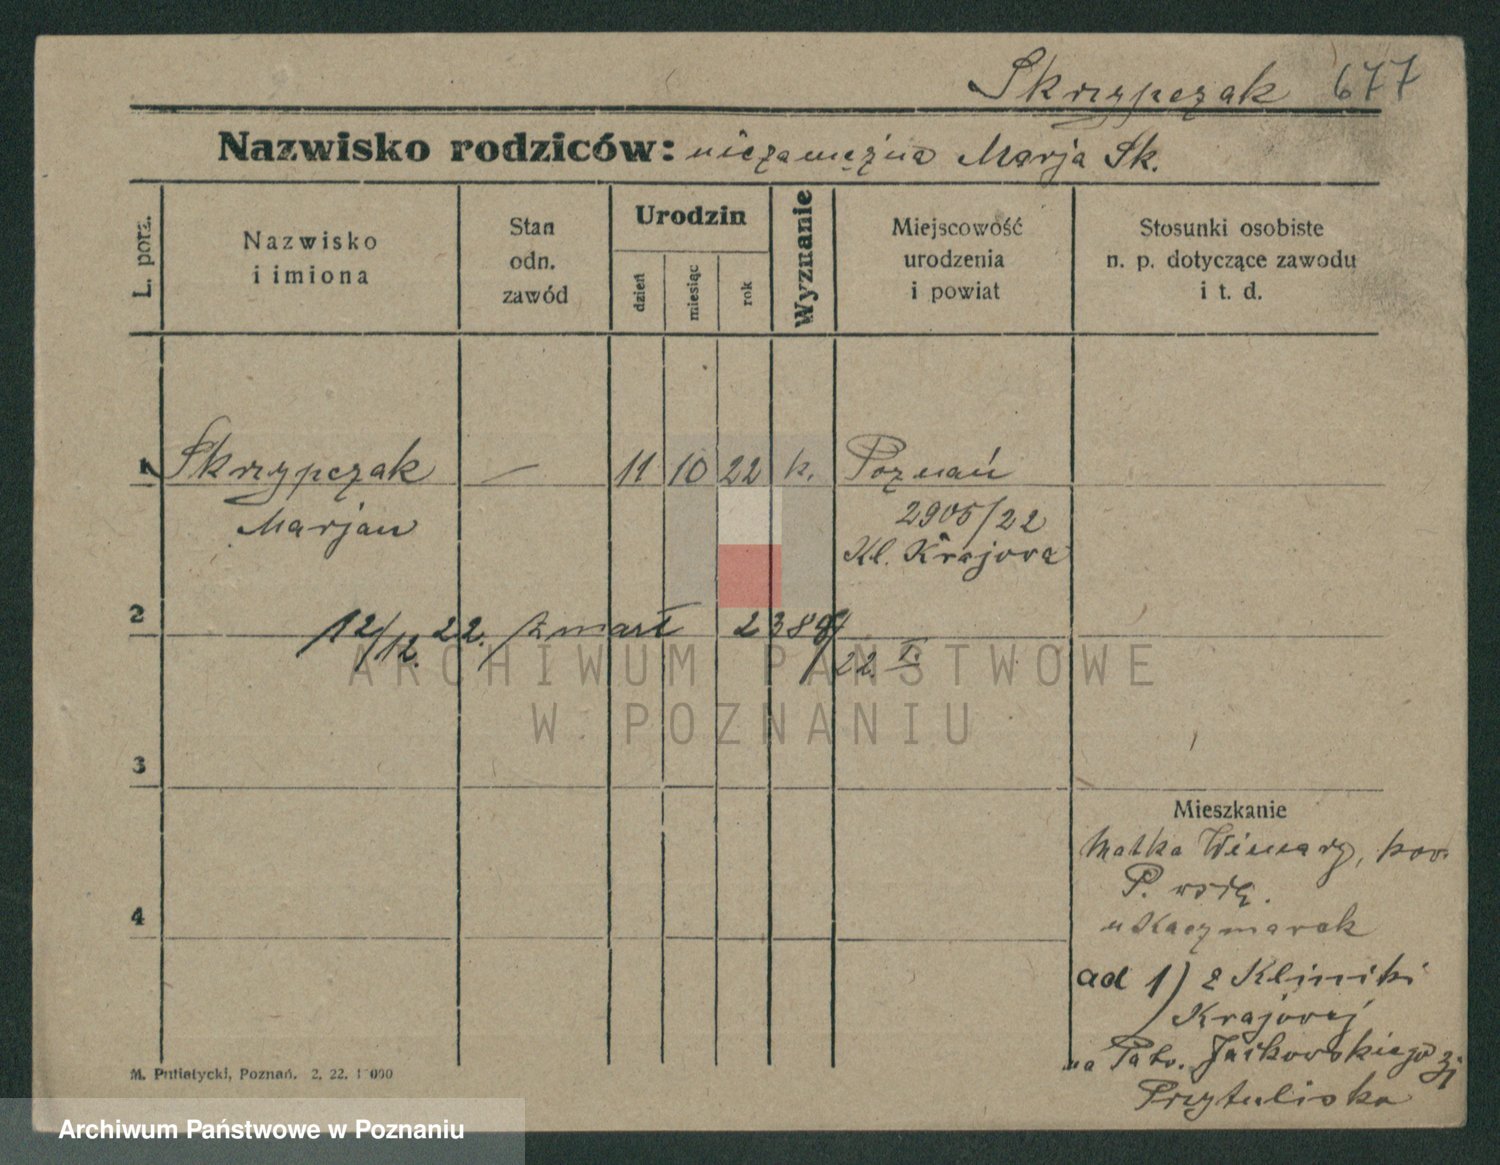 Skrzypczak 677
Nazwisko rodziców: niezamężna Marja Sk.
L. porz.
Nazwisko
i imiona
Stan
odn.
zawód
Urodzin
dzień
miesiąc
rok
Wyznanie
Miejscowość
urodzenia
i powiat
Stosunki osobiste
n. p. dotyczące zawodu
i t. d.
1 Skrzypczak — 11 10 22 k. Poznań
Marjan 2905/22
Kl. Krajowa
2
12/12. 22. zmarł
22. I.
3
4
Mieszkanie
Matka Winiary,
P. wsch.
u Kaczmarek
ad 1) z Kliniki
Krajowej
na Patr. Jackowskiego
Przytuliska
M. Putiatycki, Poznań. 2. 22.
ARCHIWUM PAŃSTWOWE
W POZNANIU
Archiwum Państwowe w Poznaniu